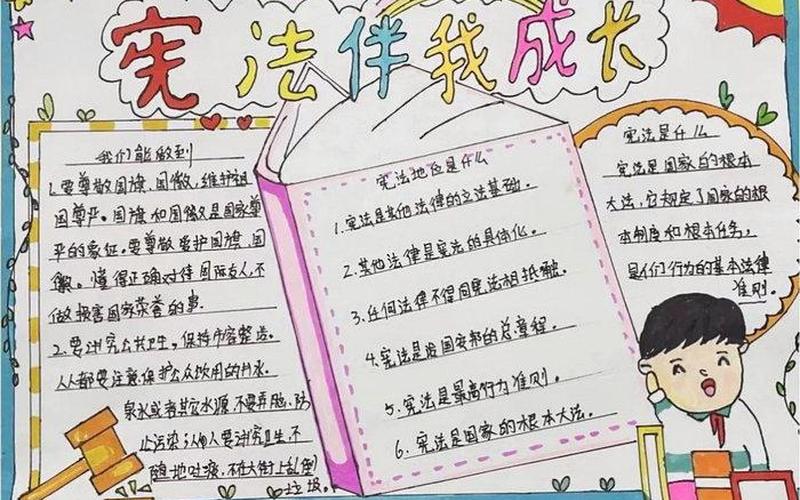 宪法伴我成长
我们能做到
1.要尊敬国旗、国徽,维护祖
国尊严。国旗和国徽是国家尊
严的象征。要尊敬爱护国旗、国
徽。懂得正确对待国际友人,不
做损害国家荣誉的事.
2.要讲究公共卫生,保持市容整洁。
人人都要注意保护公众饮用的井水.
泉水或者其它水源,不要弄脏、防
止污染;人人要讲究卫生,不
随地吐痰,不在大街上乱
垃圾。
宪法地位是什么
1.宪法是其他法律的立法基础。
2.其他法律是宪法的具体化。
3.任何法律不得同宪法相抵触。
4.宪法是治国安邦的总章程。
5.宪法是最高行为准则。
6.宪法是国家的根本大法。
宪法是什么
宪法是国家的根本
大法,它规定了国家的根
本制度和根本任务,
是人们行为的基本法律
准则。